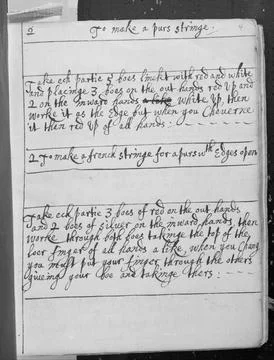 6
To make a purs stringe.
Take eck partie 5 boes linkit with red and white
and placinge 3 boes on the out hands red up and
2 on the inward hands white up, then
worke it as the Edge but when you
it then red up of all hands:
2 To make a french stringe for a purs wth Edges open
Take eck partie 3 boes of red on the out hands
and 2 boes of silver on the inward hands, then
worke through both boes takinge the top of the
loer finger of all hands a like, when you Chang
you must put your finger through the others
giveing your boe and takinge theirs: